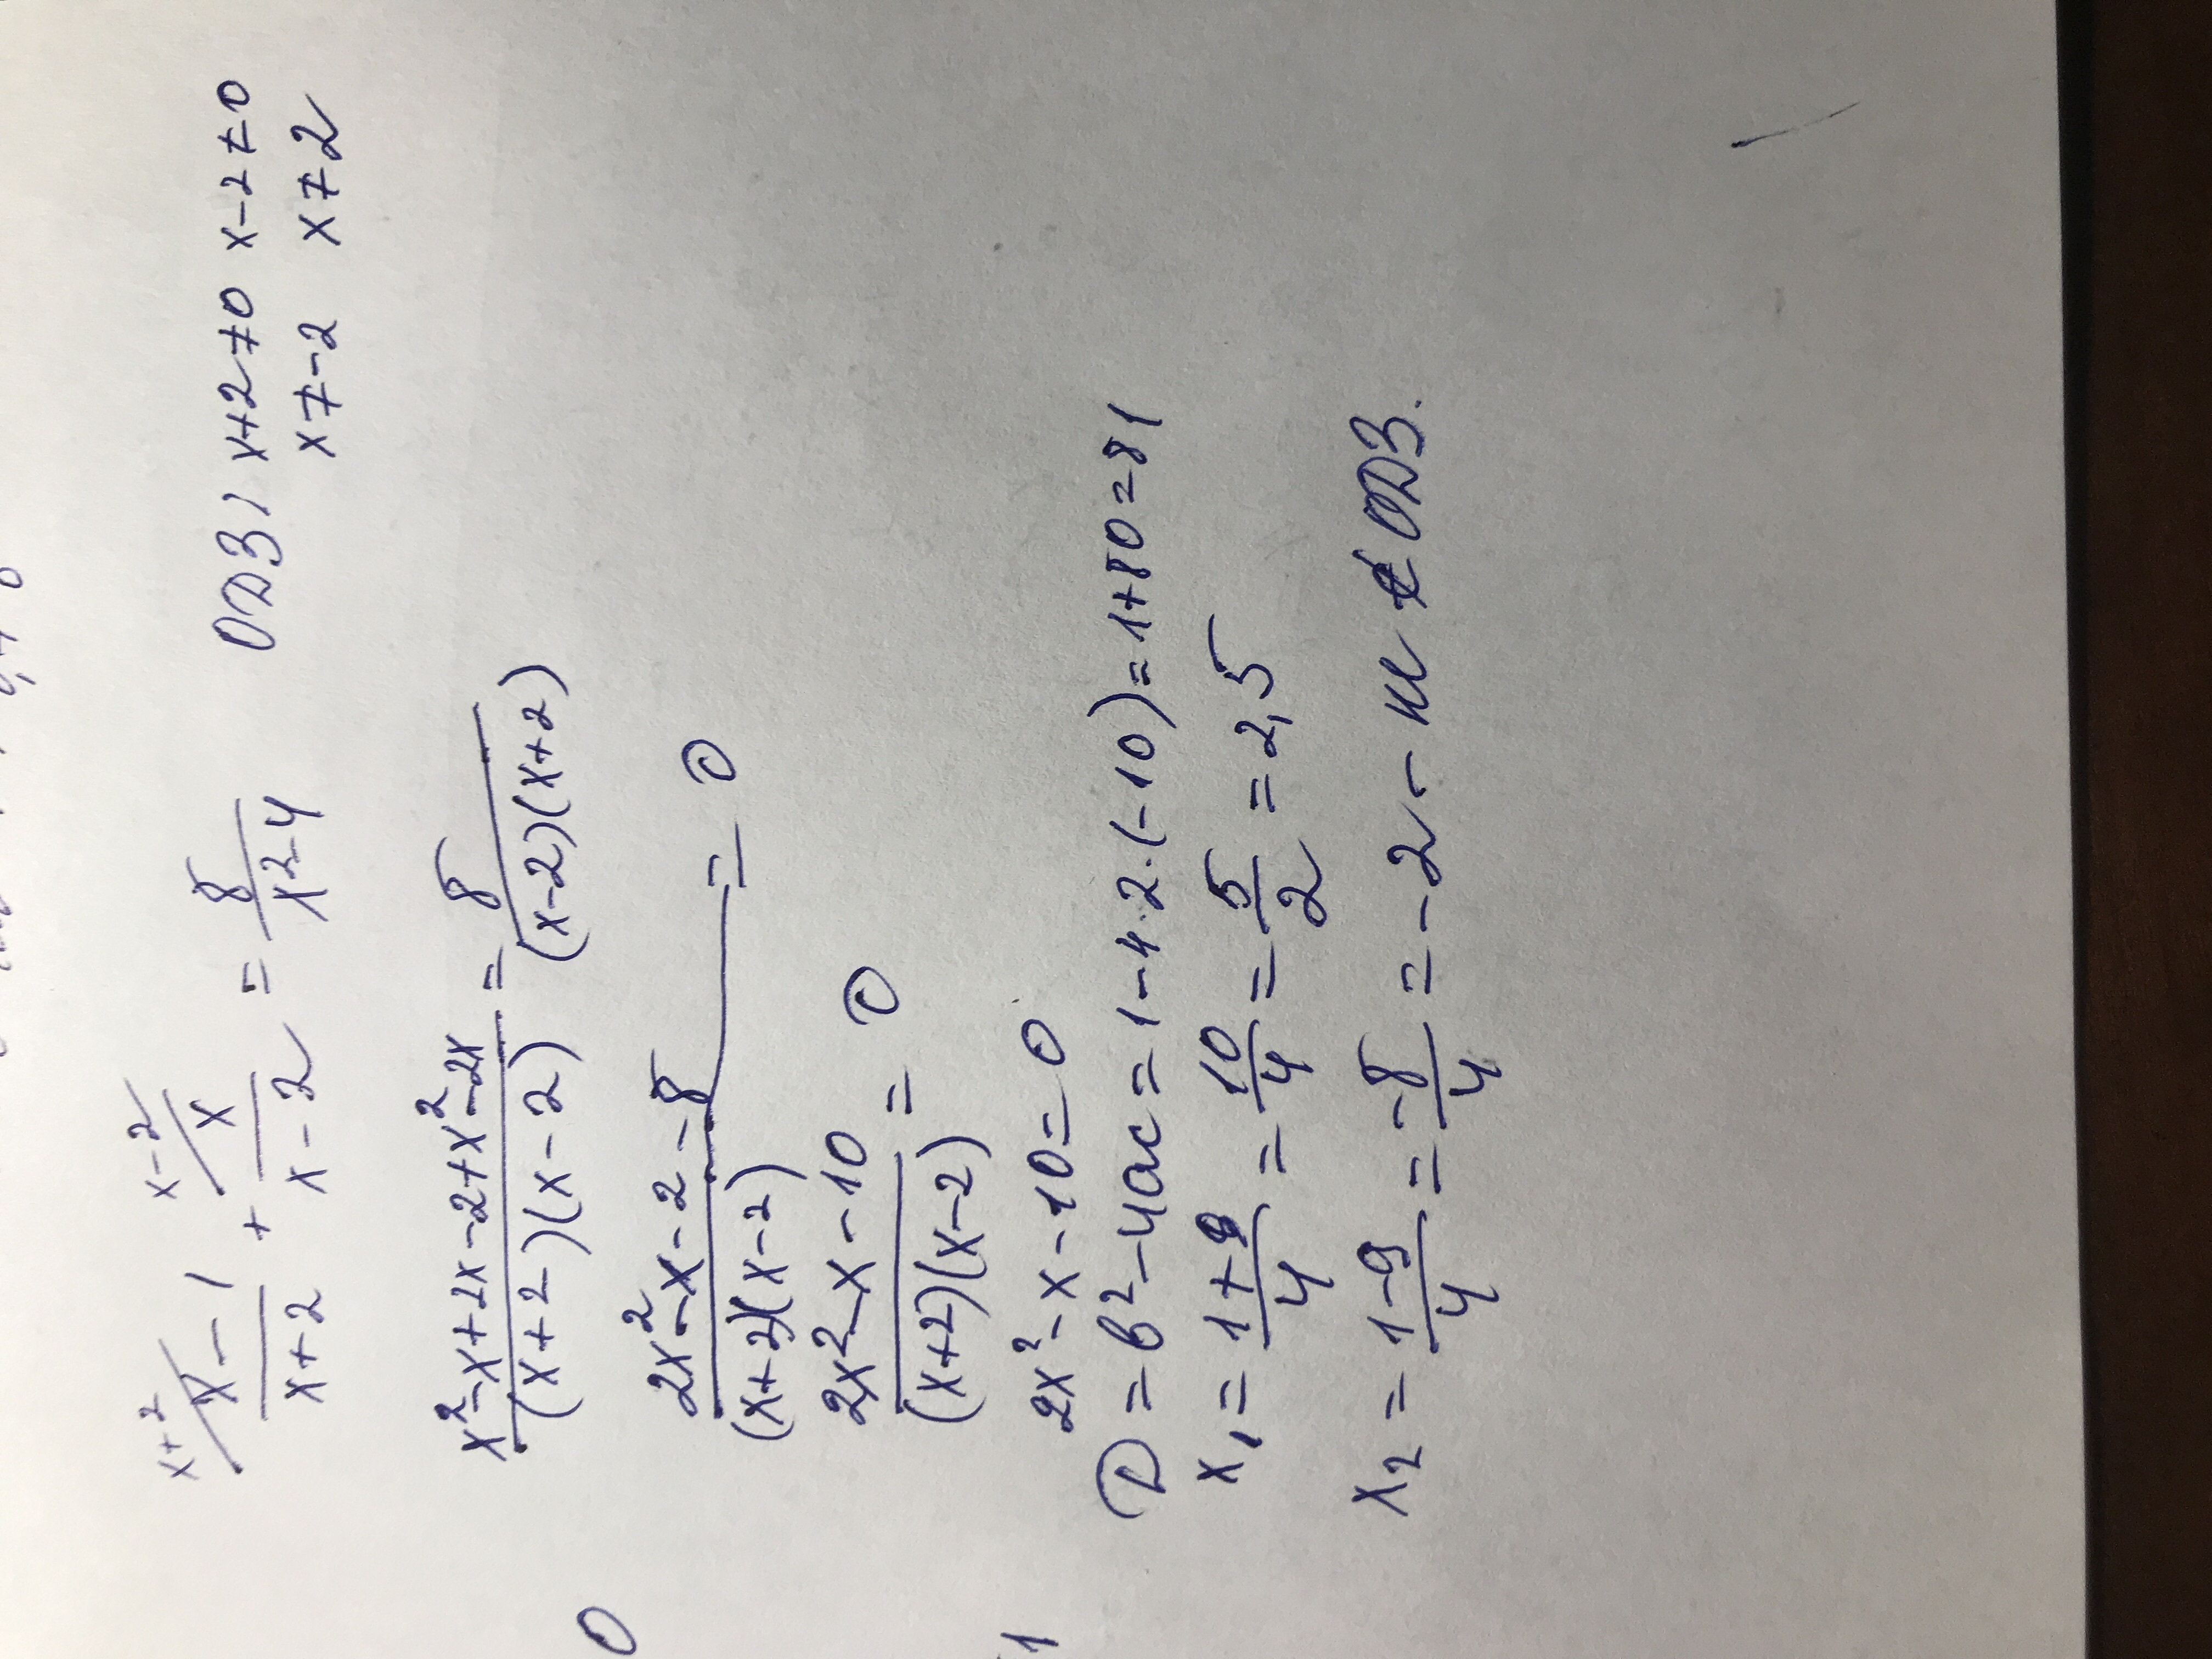 x+2 x-2
x-1/x+2 + x/x-2 = 8/x²-4 ОДЗ: x+2≠0 x-2≠0
x≠-2 x≠2
x²-x+2x-2+x²-2x/(x+2)(x-2) = 8/(x-2)(x+2)
0
2x²-x-2-8/(x+2)(x-2) = 0
2x²-x-10/(x+2)(x-2) = 0
2x²-x-10=0
1
D=b²-4ac=1-4·2·(-10)=1+80=81
x₁=1+9/4=10/4=5/2=2,5
x₂=1-9/4=-8/4=-2 - не ∈ ОДЗ.